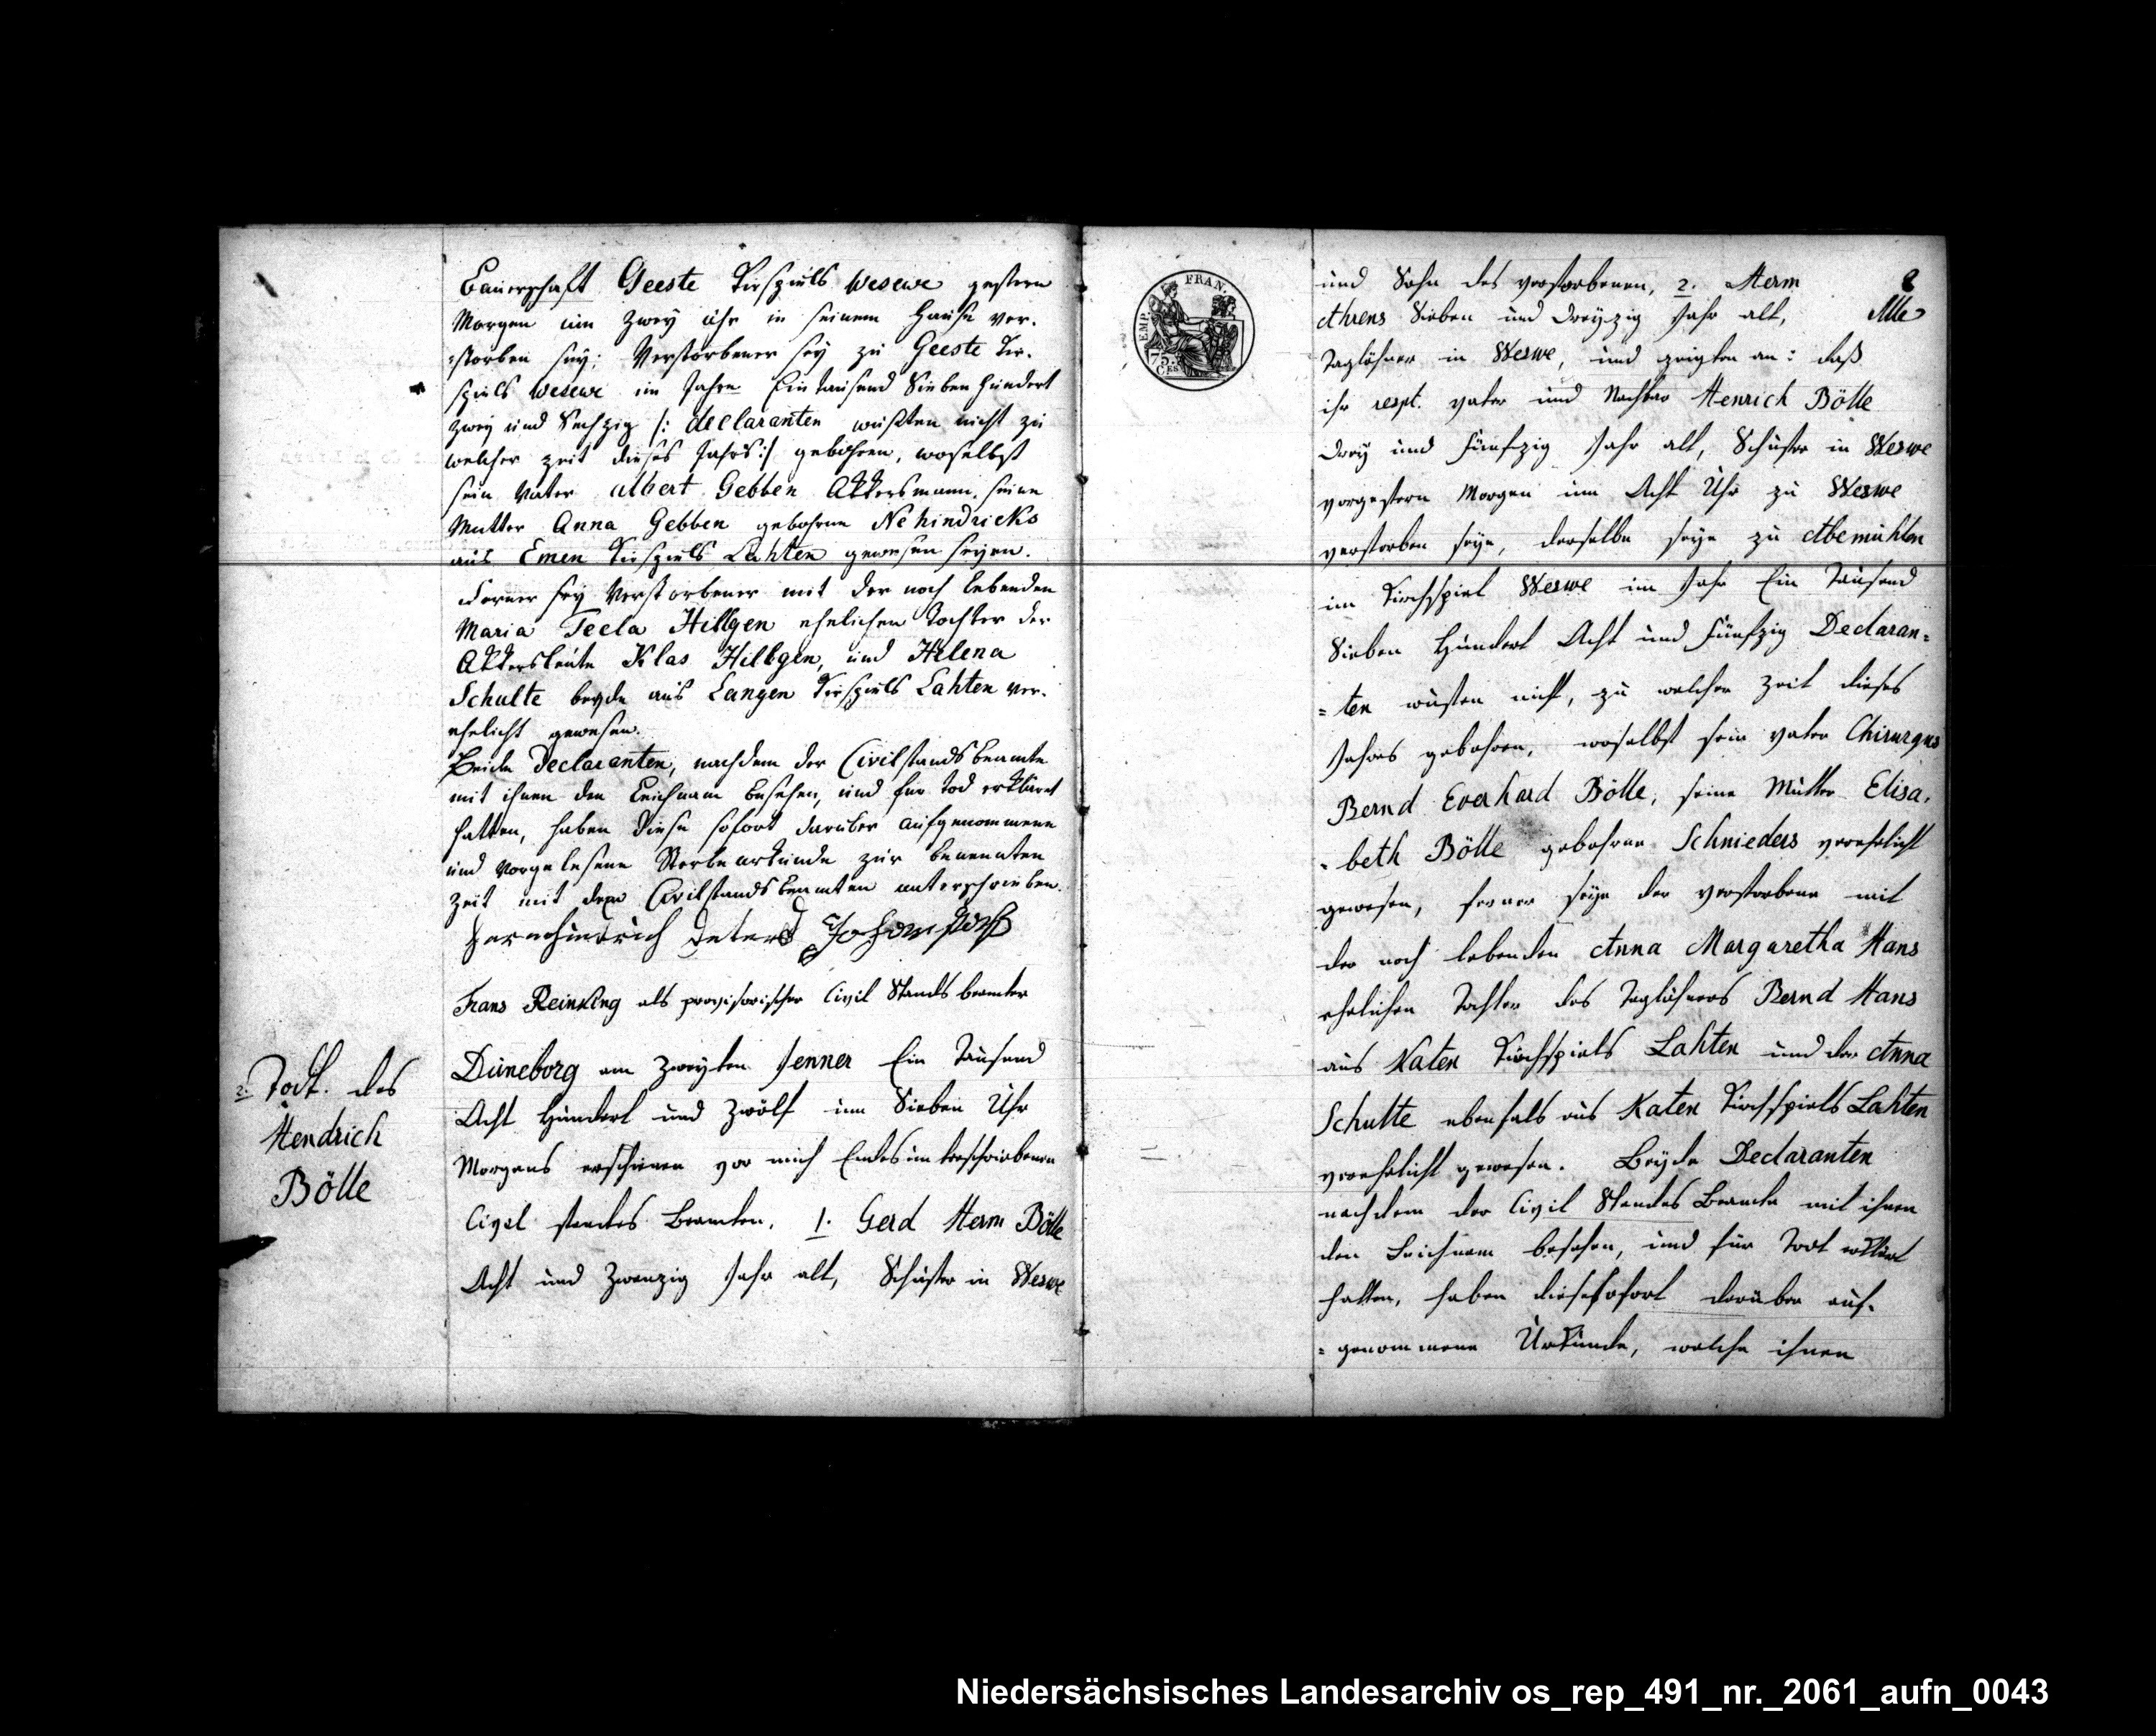 Bauerschaft Geeste Kirspiels Wesewe gestern
Morgen um zwey Uhr in seinem Hause ver-
=storben sey; Verstorbener sey zu Geeste Kir-
spiels Wesewe im Jahre Ein tausend Sieben hundert
zwey und Sechzig /: declaranten wußten nicht zu
welcher zeit dieses Jahrs :/ gebohren, woselbst
sein Vater Albert Gebben Akkersmann, seine
Mutter Anna Gebben gebohrne Nehindricks
aus Emen Kirspiels Lahten gewesen seyen.
Ferner sey Verstorbener mit der noch lebenden
Maria Tecla Hillgen ehelichen Tochter der
Akkersleute Klas Hillgen, und Helena
Schulte beyde aus Langen Kirspiels Lahten ver-
ehelicht gewesen.
Beide Declaranten, nachdem der Civilstandsbeamte
mit ihnen den Leichnam besehen, und für tod erkläret
hatten, haben diese sofort darüber aufgenommene
und vorgelesene Sterbeurkunde zur benennten
Zeit mit dem Civilstandsbeamten unterschrieben.
Hermhindrich Deters
Frans Reinking als provisorischer Civil Stands beamter
2. Todt. des
Hendrich
Bölle
Düneborg am zweyten Jenner Ein Tausend
Acht Hundert und zwölf um Sieben Uhr
Morgens erschienen vor mich Endesunterschriebenen
Civil standes Beamten, 1. Gerd Herm Bölle
Acht und Zwanzig Jahr alt, Schüster in Weswe
EMP. FRAN.
75. CES
8
und Sohn des verstorbenen, 2. Herm
Ahrens Sieben und Dreyzig Jahr alt,
Taglöhner in Weswe, und zeigten an: daß
ihr respt. Vater und Nachbar Henrich Bölle
Drey und Fünfzig Jahr alt, Schüster in Weswe
vorgestern Morgen um Acht Uhr zu Weswe
verstorben seye, derselbe seye zu Abemühlen
im Kirchspiel Weswe im Jahr Ein Tausend
Sieben Hundert Acht und Fünfzig Declaran=
=ten wüsten nicht, zu welcher Zeit dieses
Jahres gebohren, woselbst sein Vater Chirurgus
Bernd Everhard Bölle, seine Mutter Elisa-
-beth Bölle gebohrne Schnieders verehelicht
gewesen, ferner seye der verstorbene mit
der noch lebenden Anna Margaretha Hans
ehelichen Tochter des Taglöhners Bernd Hans
aus Katen Kirchspiels Lahten und der Anna
Schulte ebenfals aus Katen Kirchspiels Lahten
verehelicht gewesen. Beyde Declaranten
nachdem der Civil Standes Beamte mit ihnen
den Leichnam besehen, und für Todt erklärt
hatten, haben diese sofort darüber auf-
=genommene Urkunde, welche ihnen
Niedersächsisches Landesarchiv os_rep_491_nr._2061_aufn_0043